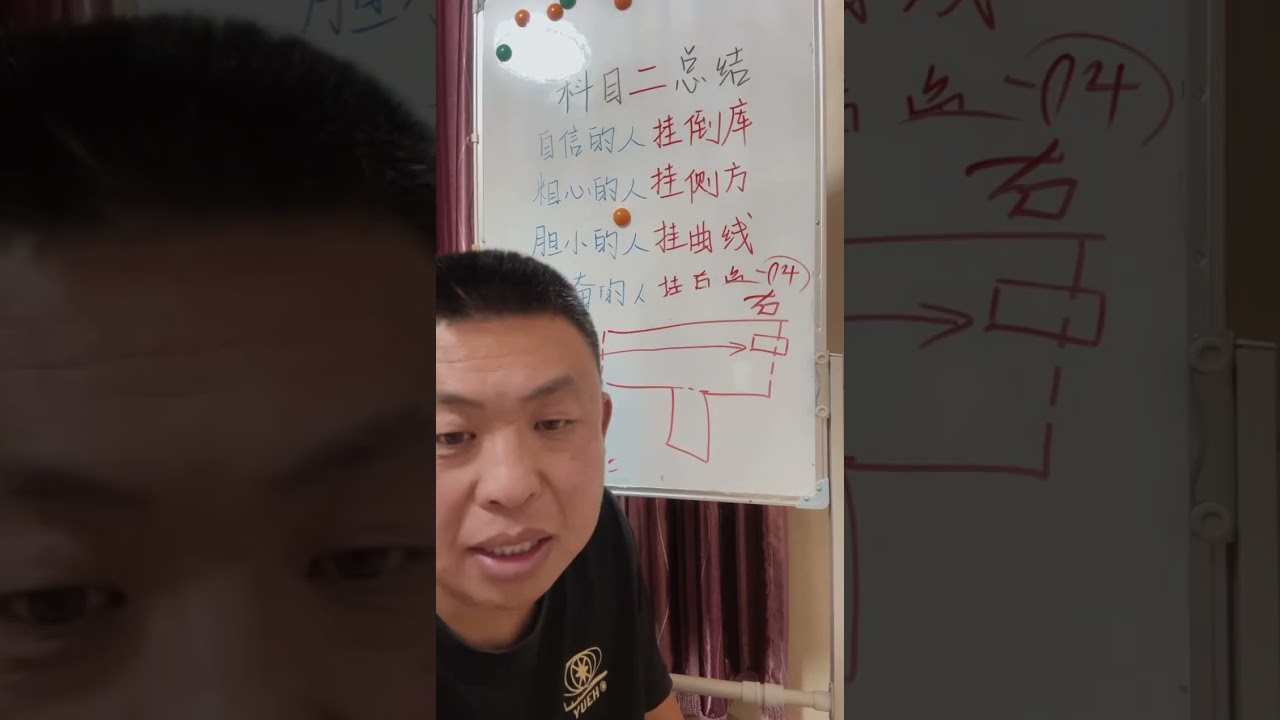 科目二总结
自信的人挂倒库
粗心的人挂侧方
胆小的人挂曲线
的人挂右
右
YUEH